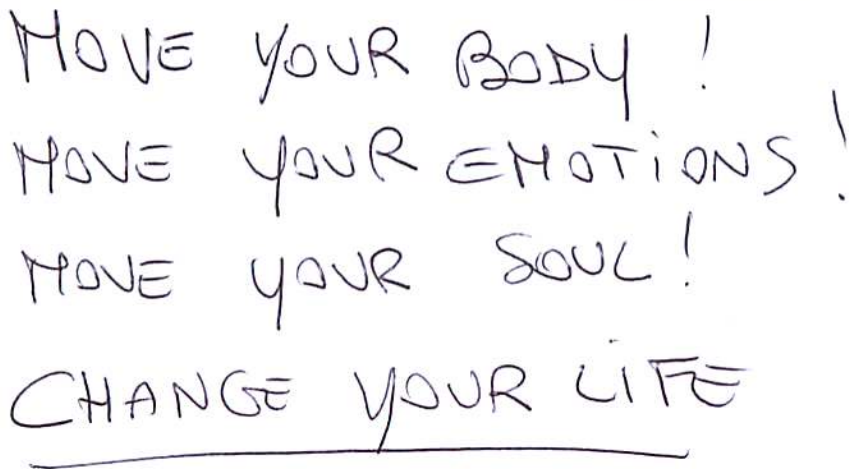 MOVE YOUR BODY !
MOVE YOUR EMOTIONS !
MOVE YOUR SOUL !
CHANGE YOUR LIFE